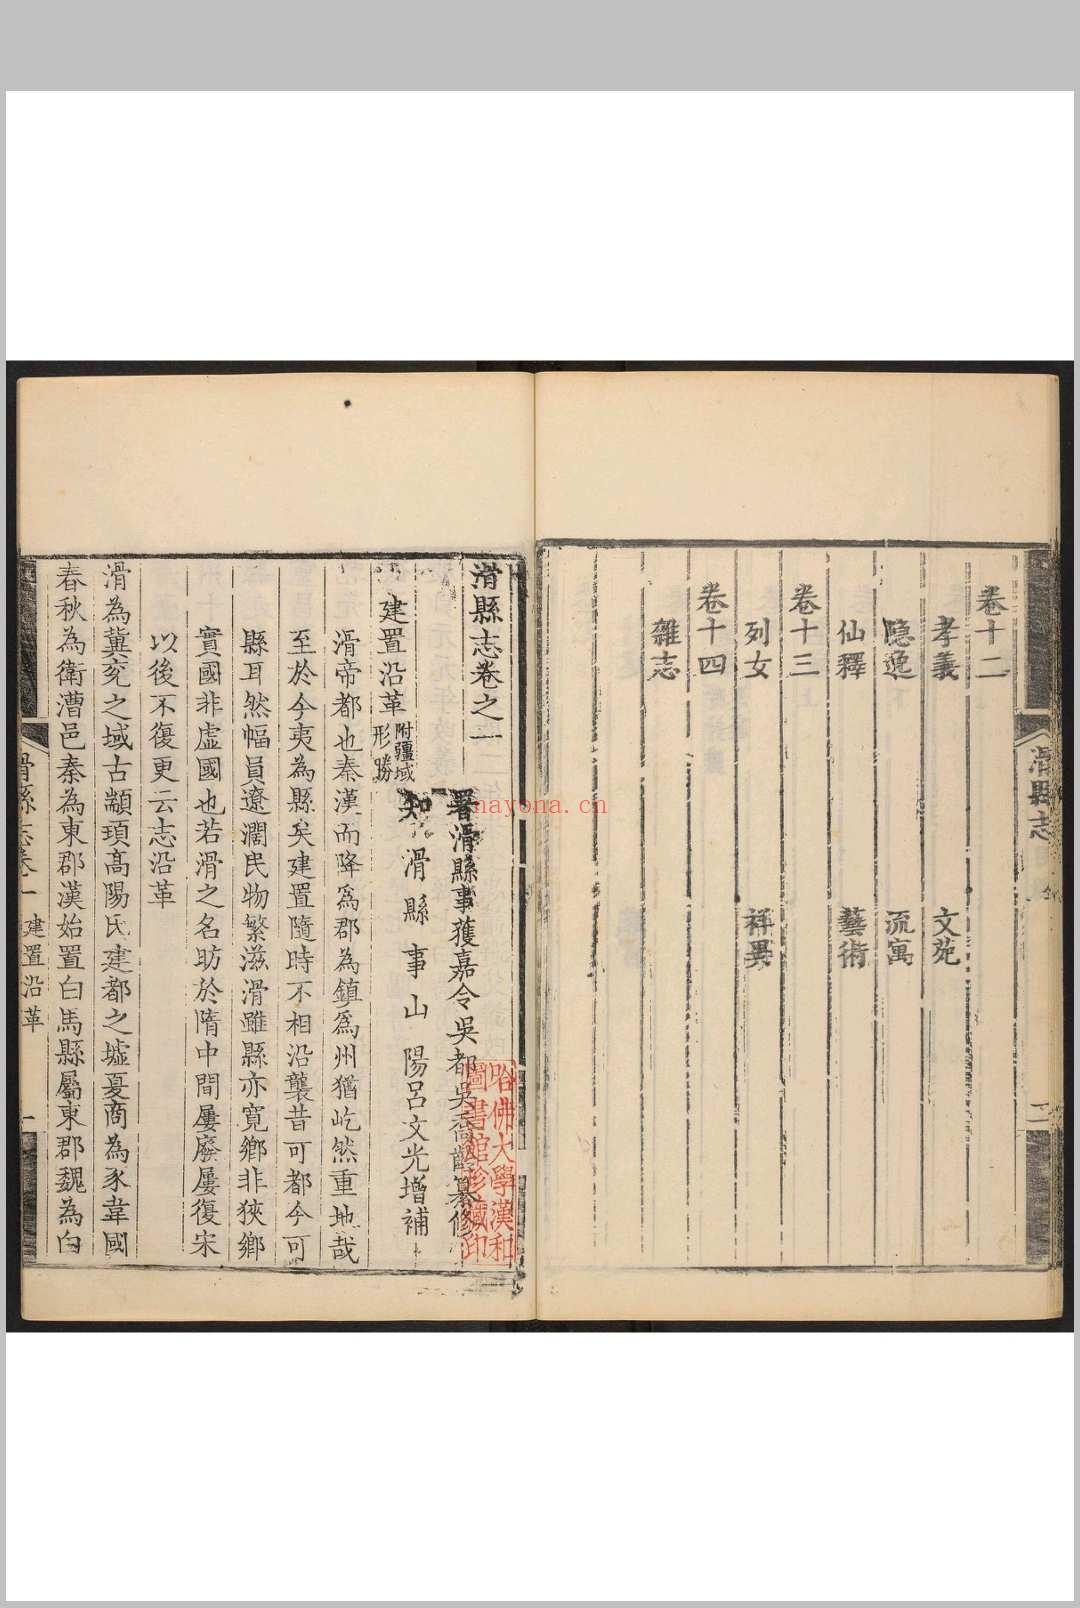 卷十二
孝義 文苑
隱逸 流寓
仙釋 藝術
卷十三
列女 祥異
卷十四
雜志
滑縣志
二
滑縣志卷之一
署滑縣事獲嘉令吳都吳喬齡纂修
知滑縣事山陽呂文光增補
建置沿革 附疆域形勝
滑帝都也秦漢而降爲郡為鎮爲州猶屹然重地哉
至於今夷為縣矣建置隨時不相沿襲昔可都今可
縣耳然幅員遼濶民物繁滋滑雖縣亦寛鄉非狹鄉
實國非虛國也若滑之名昉於隋中間屢廢屢復宋
以後不復更云志沿革
滑為冀兖之域古顓頊高陽氏建都之墟夏商為豕韋國
春秋為衛漕邑秦為東郡漢始置白馬縣屬東郡魏為白
滑縣志卷一 建置沿革 一
哈佛大學漢和
圖書館珍藏印
nayona.cn